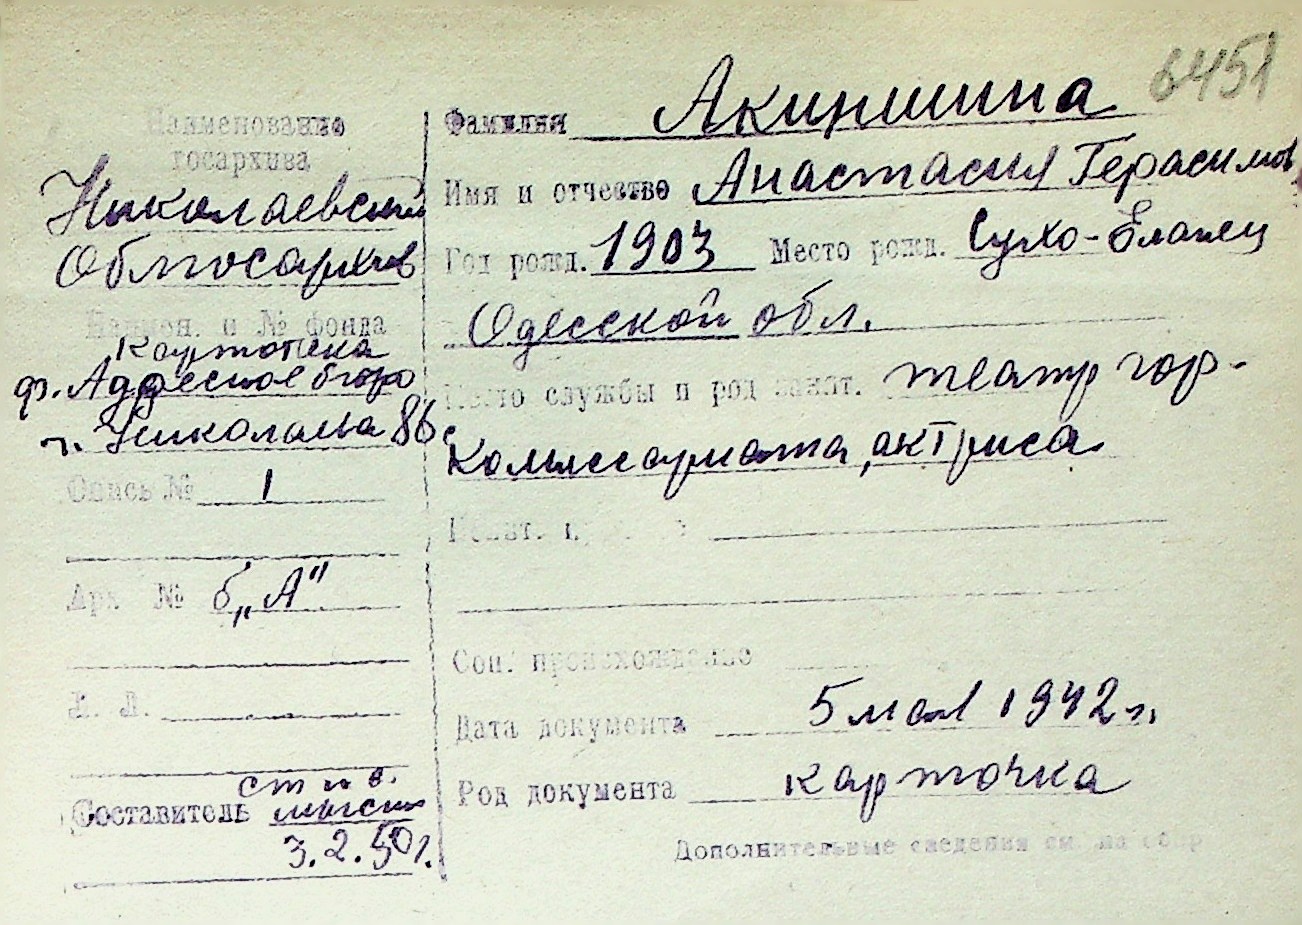 6451
Наименование
госархива
Николаевский
Облгосархив
Наимен. и № фонда
Картотека
ф. Аддресное бюро
г. Николаева 86с
Опись № 1
Арх № б„А"
Л. Л.
ст н с.
Составитель
3.2.50г.
Фамилия Акиншина
Имя и отчество Анастасия Герасимов
Год рожд. 1903 Место рожд. Сухо-Еланец
Одесской обл.
Место службы и род занят. театр гор-
комиссариата, актриса
Соц. происхождение
Дата документа 5 мая 1942 г.
Род документа карточка
Дополнительные сведения см. на обор